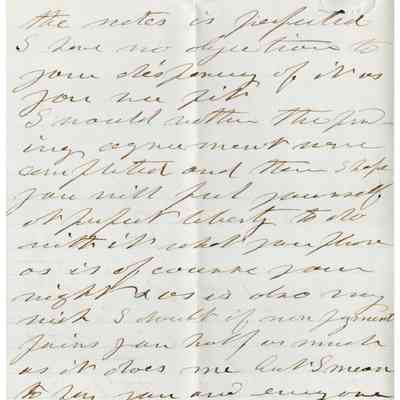 the notes is perfected
I have no objection to
your disposing of it as
you see fit
I would rather the fund
ing agreement were
completed and then I hope
you will feel yourself
at perfect liberty to do
with it what you please
as is of course your
right & as is also my
wish I doubt if non payment
pains you half as much
as it does me but I mean
to pay you and everyone